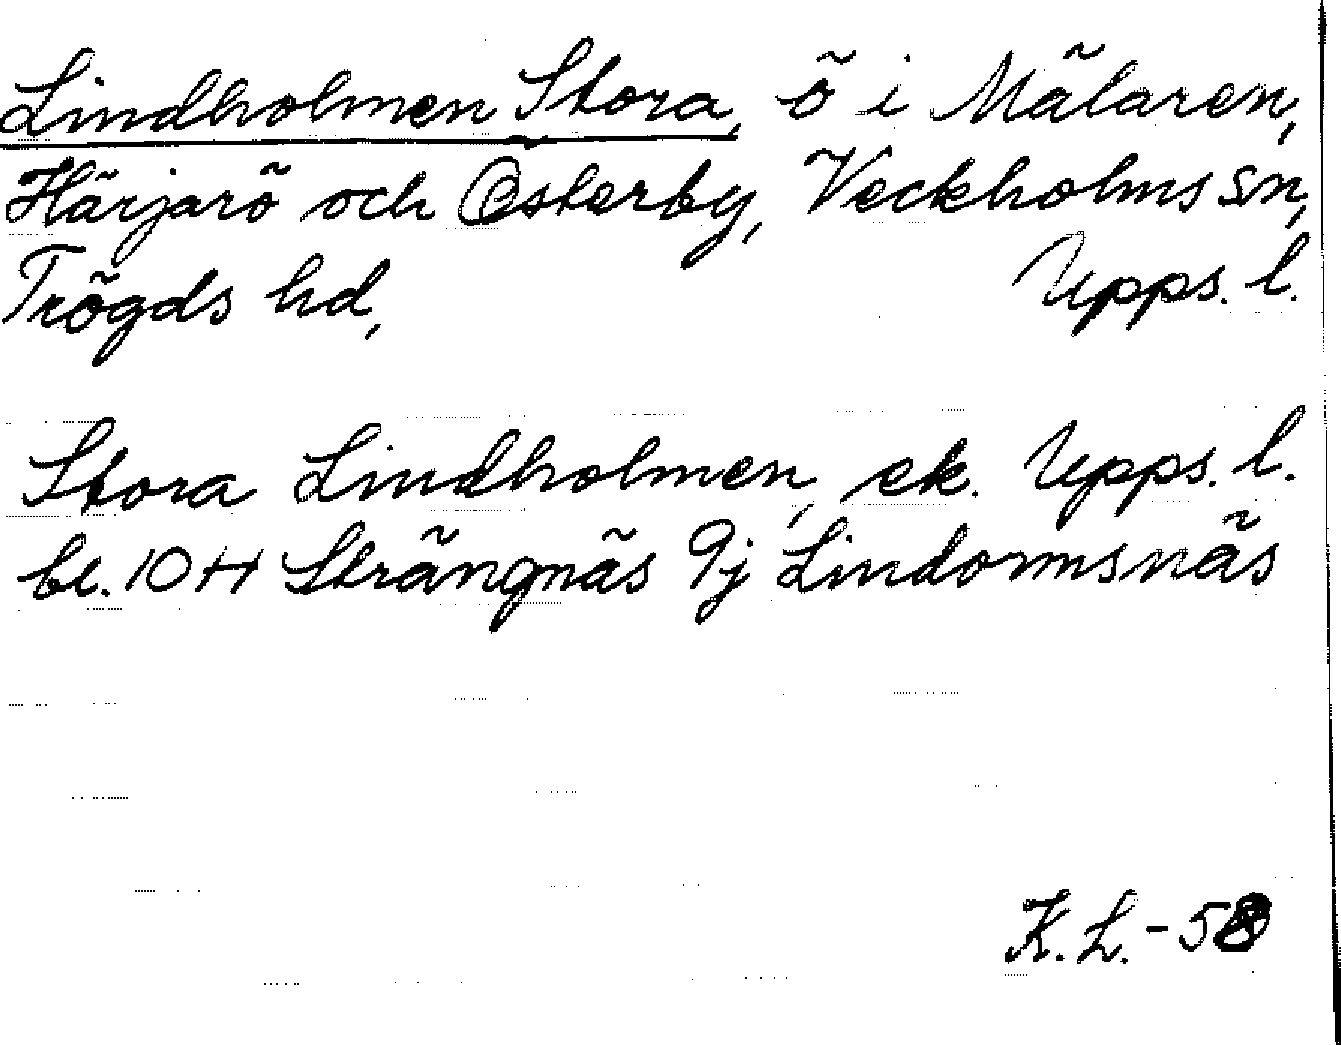 Lindholmen Stora, ö i Mälaren,
Härjarö och Österby, Veckholms sn,
Trögds hd, Upps. l.
Stora Lindholmen, ek. Upps. l.
bl. 10H Strängnäs 9j Lindormsnäs
K.L.-58